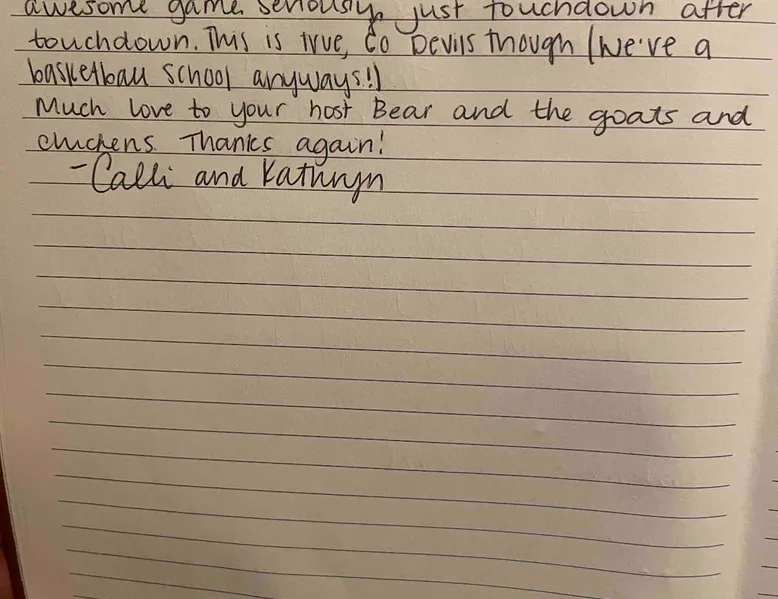 awesome game. Seriously, just touchdown after
touchdown. This is true, Go Devils though (we've a
basketball school anyways!)
Much love to your host Bear and the goats and
chickens. Thanks again!
-Calli and Kathryn